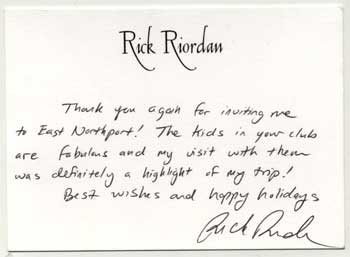 Rick Riordan
Thank you again for inviting me
to East Northport! The kids in your club
are fabulous and my visit with them
was definitely a highlight of my trip!
Best wishes and happy holidays
Rick Riordan